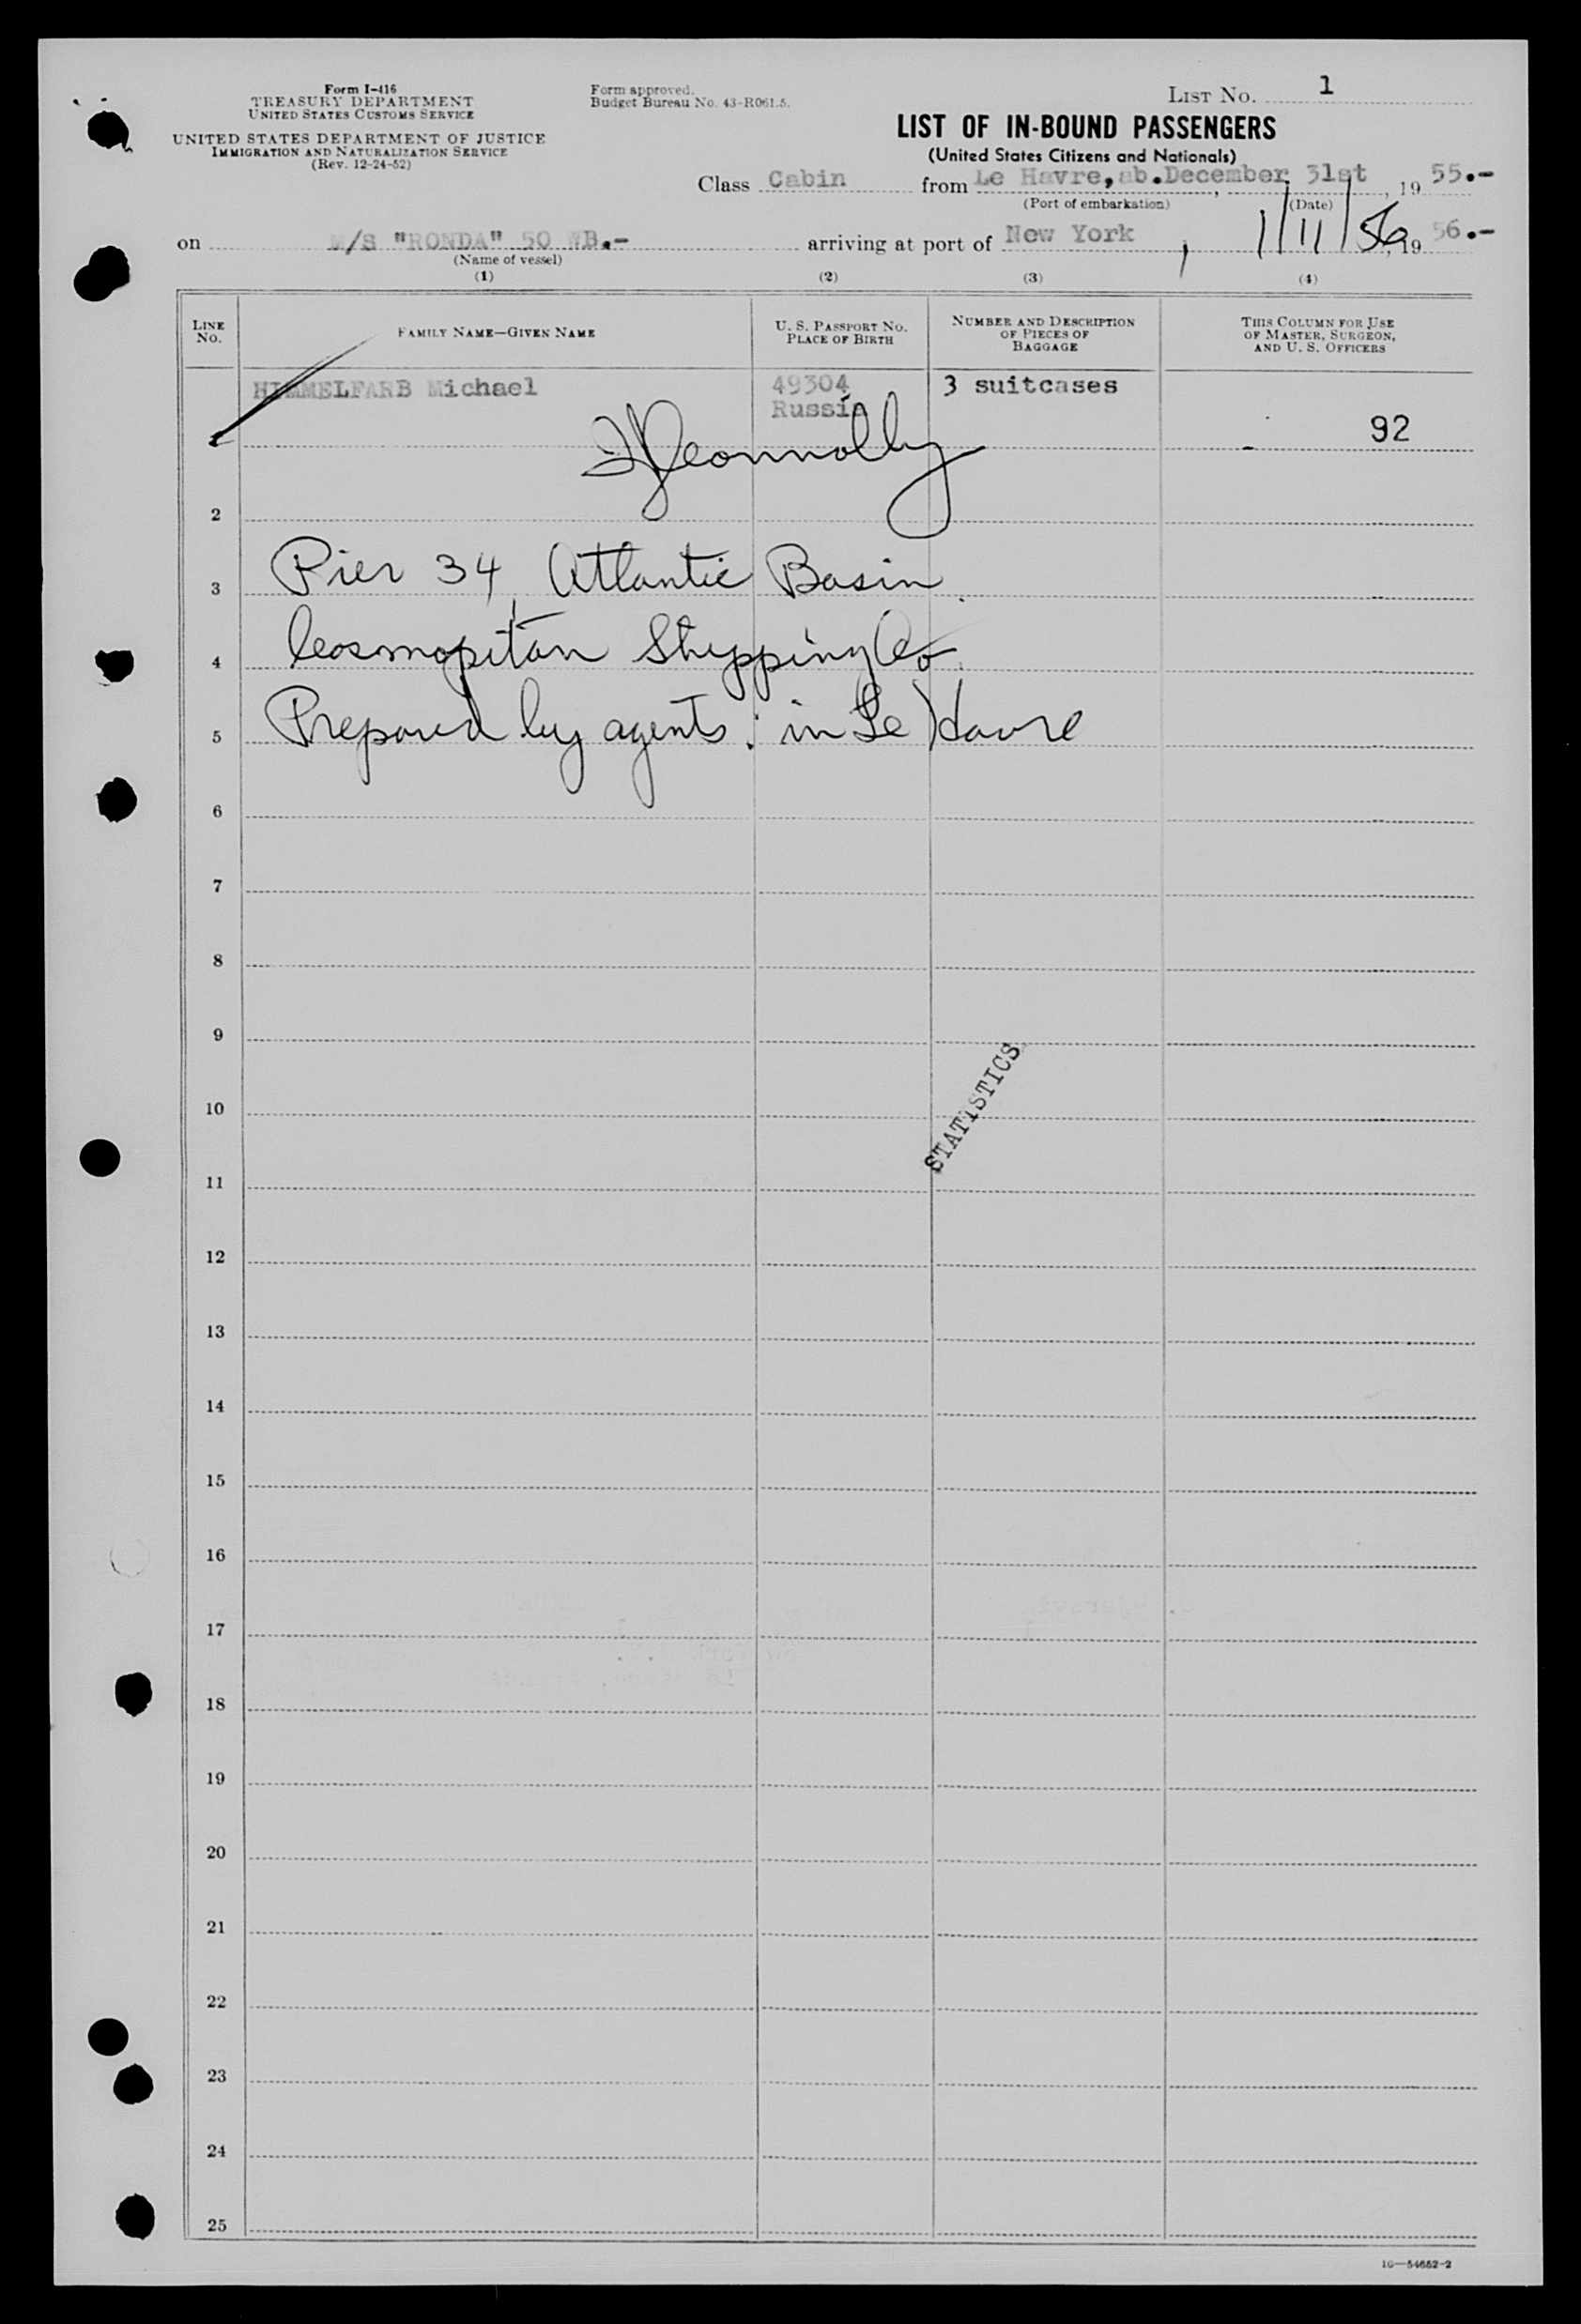 Form I-416
TREASURY DEPARTMENT
UNITED STATES CUSTOMS SERVICE
UNITED STATES DEPARTMENT OF JUSTICE
IMMIGRATION AND NATURALIZATION SERVICE
(Rev. 12-24-52)
Form approved.
Budget Bureau No. 43-R061.5.
LIST NO. 1
LIST OF IN-BOUND PASSENGERS
(United States Citizens and Nationals)
Class Cabin from Le Havre, ab. December 31st, 19 55.-
(Port of embarkation) (Date)
on M/S "RONDA" 50 WB.- arriving at port of New York, 1/11/56, 19 56.-
(Name of vessel)
(1) (2) (3) (4)
LINE NO. FAMILY NAME—GIVEN NAME U. S. PASSPORT NO. PLACE OF BIRTH NUMBER AND DESCRIPTION OF PIECES OF BAGGAGE THIS COLUMN FOR USE OF MASTER, SURGEON, AND U. S. OFFICERS
HIMMELFARB Michael 49304 3 suitcases
Russia
92
Connolly
2
3 Pier 34, Atlantic Basin
4 Cosmopitan Shipping Co.
5 Prepared by agents: in Le Havre
6
7
8
9
STATISTICS
10
11
12
13
14
15
16
17
18
19
20
21
22
23
24
25
16—54652-2